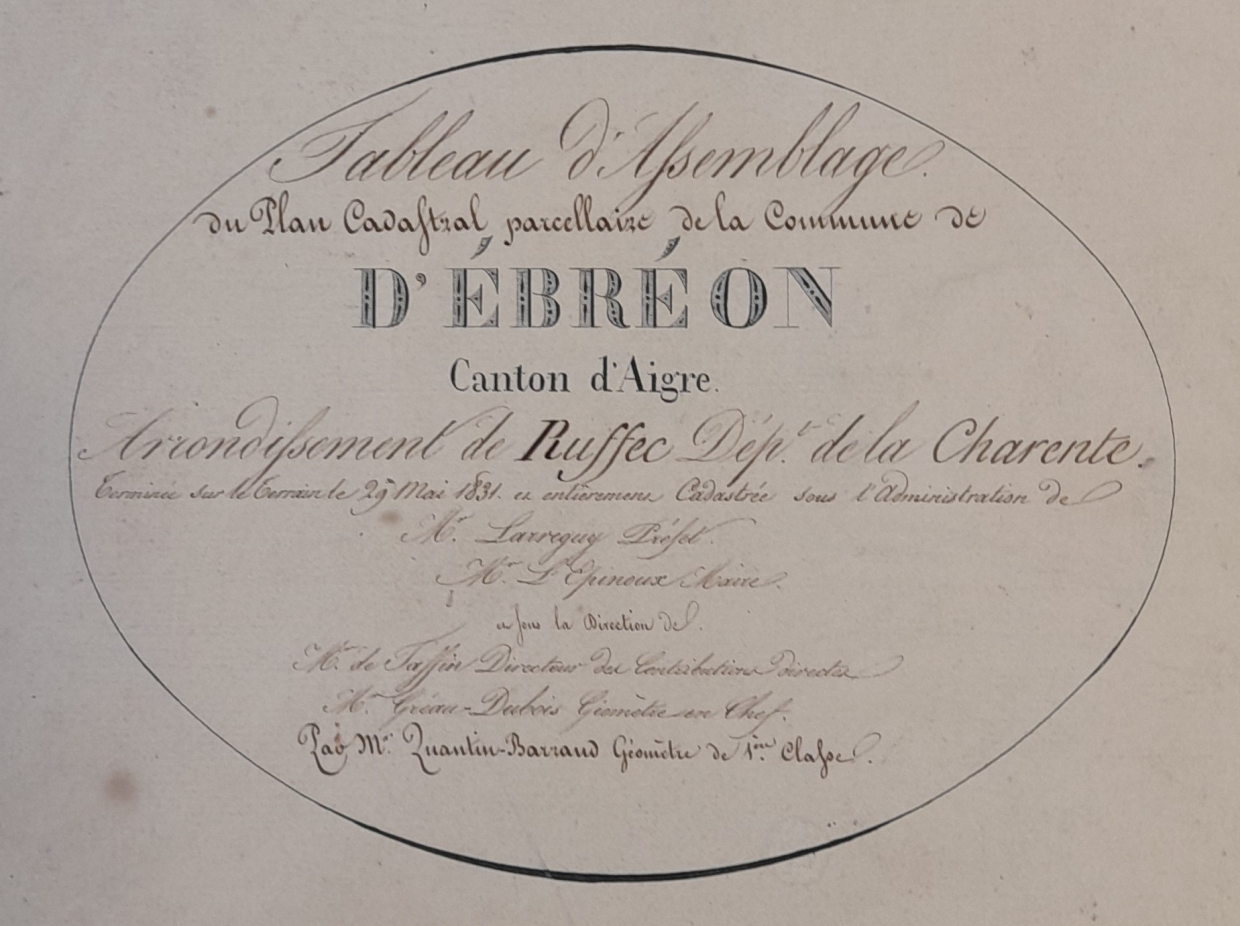 Tableau d'Assemblage.
du Plan Cadastral parcellaire de la Commune de
D'ÉBRÉON
Canton d'Aigre.
Arrondissement de Ruffec Dép.t de la Charente.
Terminée sur le terrain le 29 Mai 1831. et entièrement Cadastrée sous l'Administration de
Mr. Larreguy Préfet.
Mr. L'Epinoux Maire.
et sous la Direction de.
Mr. de Taffin Directeur des Contributions directes
Mr. Gréau-Dubois Géomètre en Chef.
Par Mr. Quantin-Barraud Géomètre de 1ère. Classe.